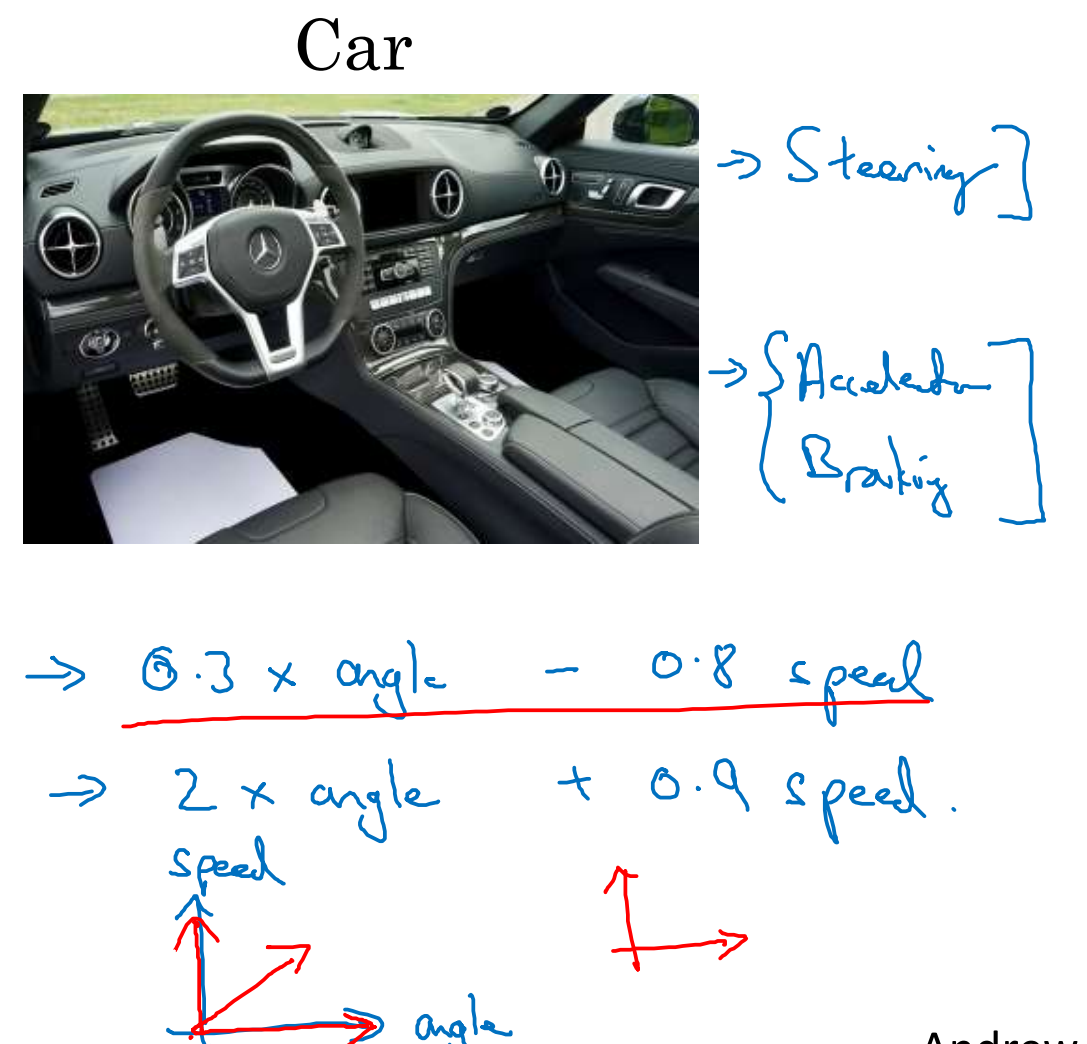 Car
→ Steering ]
→ { Accelerator
Braking ]
→ 0.3 x angle - 0.8 speed
→ 2 x angle + 0.9 speed.
speed
angle
Andrew